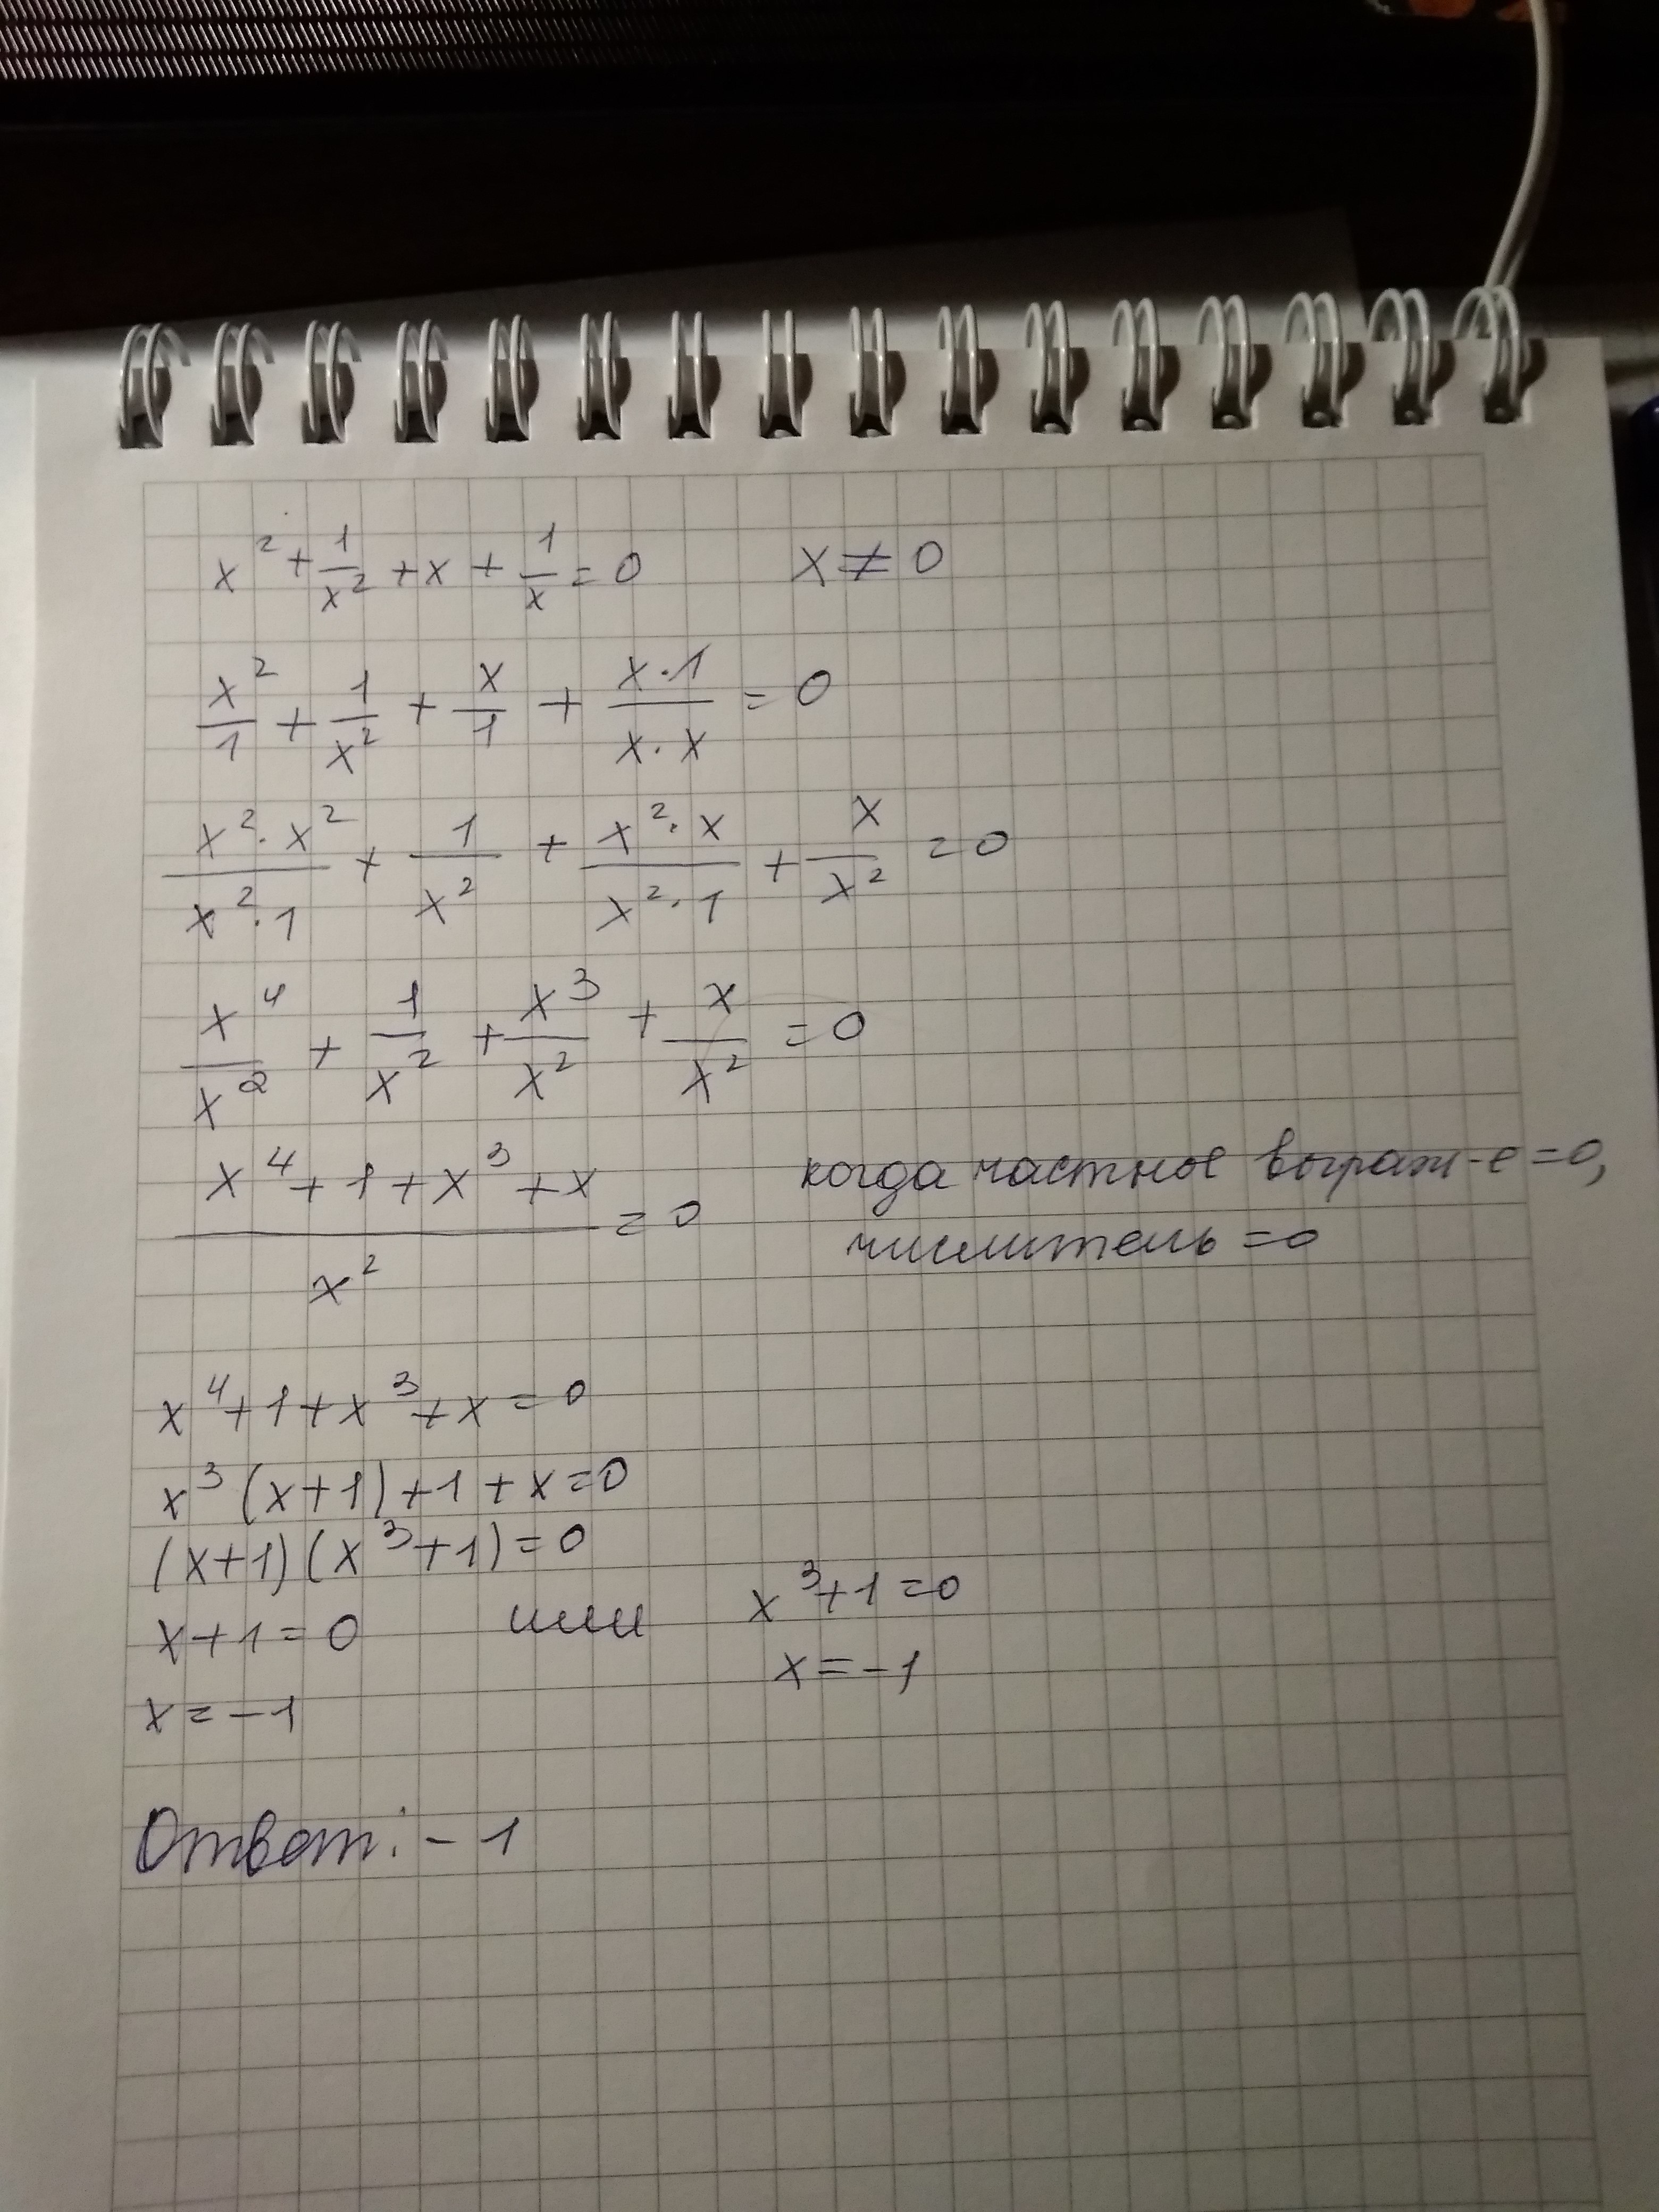 x² + 1/x² + x + 1/x = 0 x ≠ 0
x²/1 + 1/x² + x/1 + x·1/x·x = 0
x²·x²/x²·1 + 1/x² + x²·x/x²·1 + x/x² = 0
x⁴/x² + 1/x² + x³/x² + x/x² = 0
x⁴+1+x³+x/x² = 0 когда частное выраж-е =0,
числитель =0
x⁴+1+x³+x=0
x³(x+1)+1+x=0
(x+1)(x³+1)=0
x+1=0 или x³+1=0
x=-1 x=-1
Ответ: -1